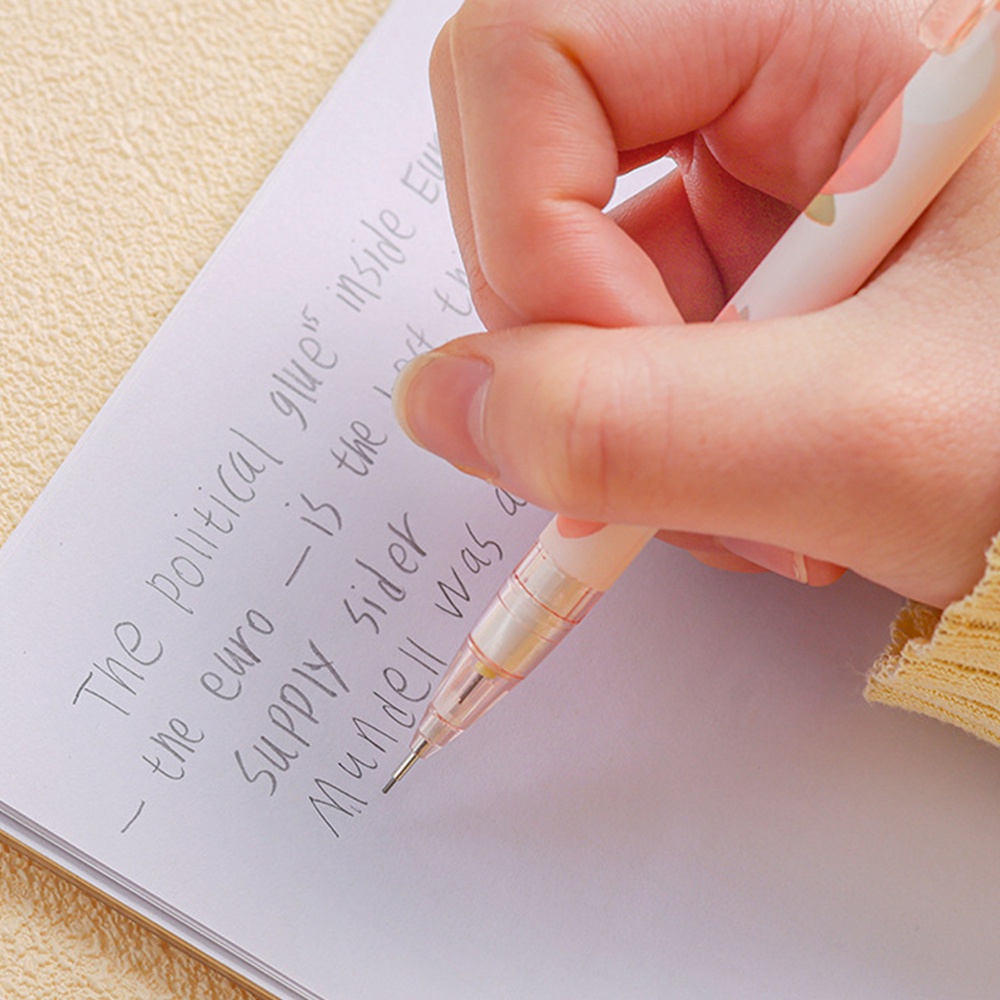 The political glue" is inside
- the euro - is the
supply sider
Mundell was